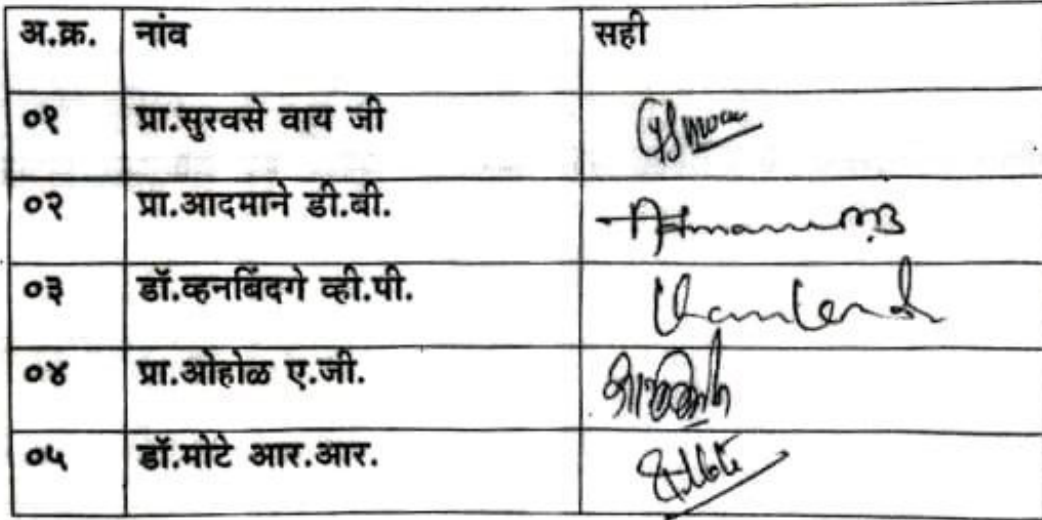 अ.क्र. नांव सही
०१ प्रा.सुरवसे वाय जी
०२ प्रा.आदमाने डी.बी.
०३ डॉ.व्हनबिंदगे व्ही.पी.
०४ प्रा.ओहोळ ए.जी.
०५ डॉ.मोटे आर.आर.